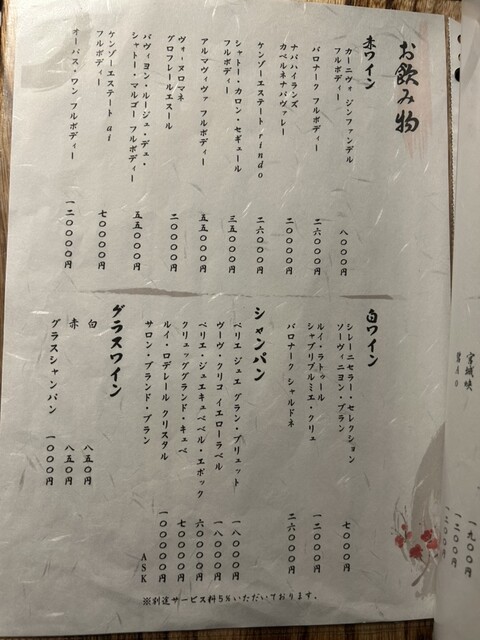 お飲み物
赤ワイン
カーニヴィ ジンファンデル
フルボディー
八〇〇〇円
バロナーク フルボディー
二六〇〇〇円
ナパハイランズ
カベルネナパヴァレー
二〇〇〇〇円
ケンゾーエステート rindo
二六〇〇〇円
シャトー・カロン・セギュール
フルボディー
三五〇〇〇円
アルマヴィヴァ フルボディー
五五〇〇〇円
ヴォーヌロマネ
グロフレールエスール
二〇〇〇〇円
パヴィーヨン・ルージュ・デュ・
シャトー・マルゴー フルボディー
五五〇〇〇円
ケンゾーエステート ai
フルボディー
七〇〇〇〇円
オーパス・ワン フルボディー
一二〇〇〇〇円
白ワイン
シレーニセラー・セレクション
ソーヴィニヨン・ブラン
七〇〇〇円
ルイ・ラトゥール
シャブリプルミエ・クリュ
一二〇〇〇円
バロナーク シャルドネ
二六〇〇〇円
シャンパン
ペリエ ジュエ グラン・ブリュット
一八〇〇〇円
ヴーヴ・クリコ イエローラベル
一八〇〇〇円
ペリエ・ジュエキュベベル・エポック
六〇〇〇〇円
クリュッググランド・キュベ
七〇〇〇〇円
ルイ・ロデレール クリスタル
一〇〇〇〇〇円
サロン・ブランド・ブラン
ASK
グラスワイン
白 八五〇円
赤 八五〇円
グラスシャンパン 一〇〇〇円
※別途サービス料5%いただいております。
宮城峡
一九〇〇円